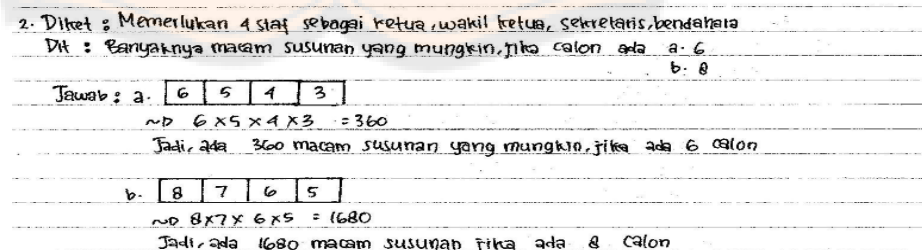 2. Diket : Memerlukan 4 staf sebagai ketua, wakil ketua, sekretaris, bendahara
Dit : Banyaknya macam susunan yang mungkin, jika calon ada a. 6
b. 8
Jawab : a. 6 5 4 3
~> 6 x 5 x 4 x 3 = 360
Jadi, ada 360 macam susunan yang mungkin, jika ada 6 calon
b. 8 7 6 5
~> 8 x 7 x 6 x 5 = 1680
Jadi, ada 1680 macam susunan jika ada 8 calon